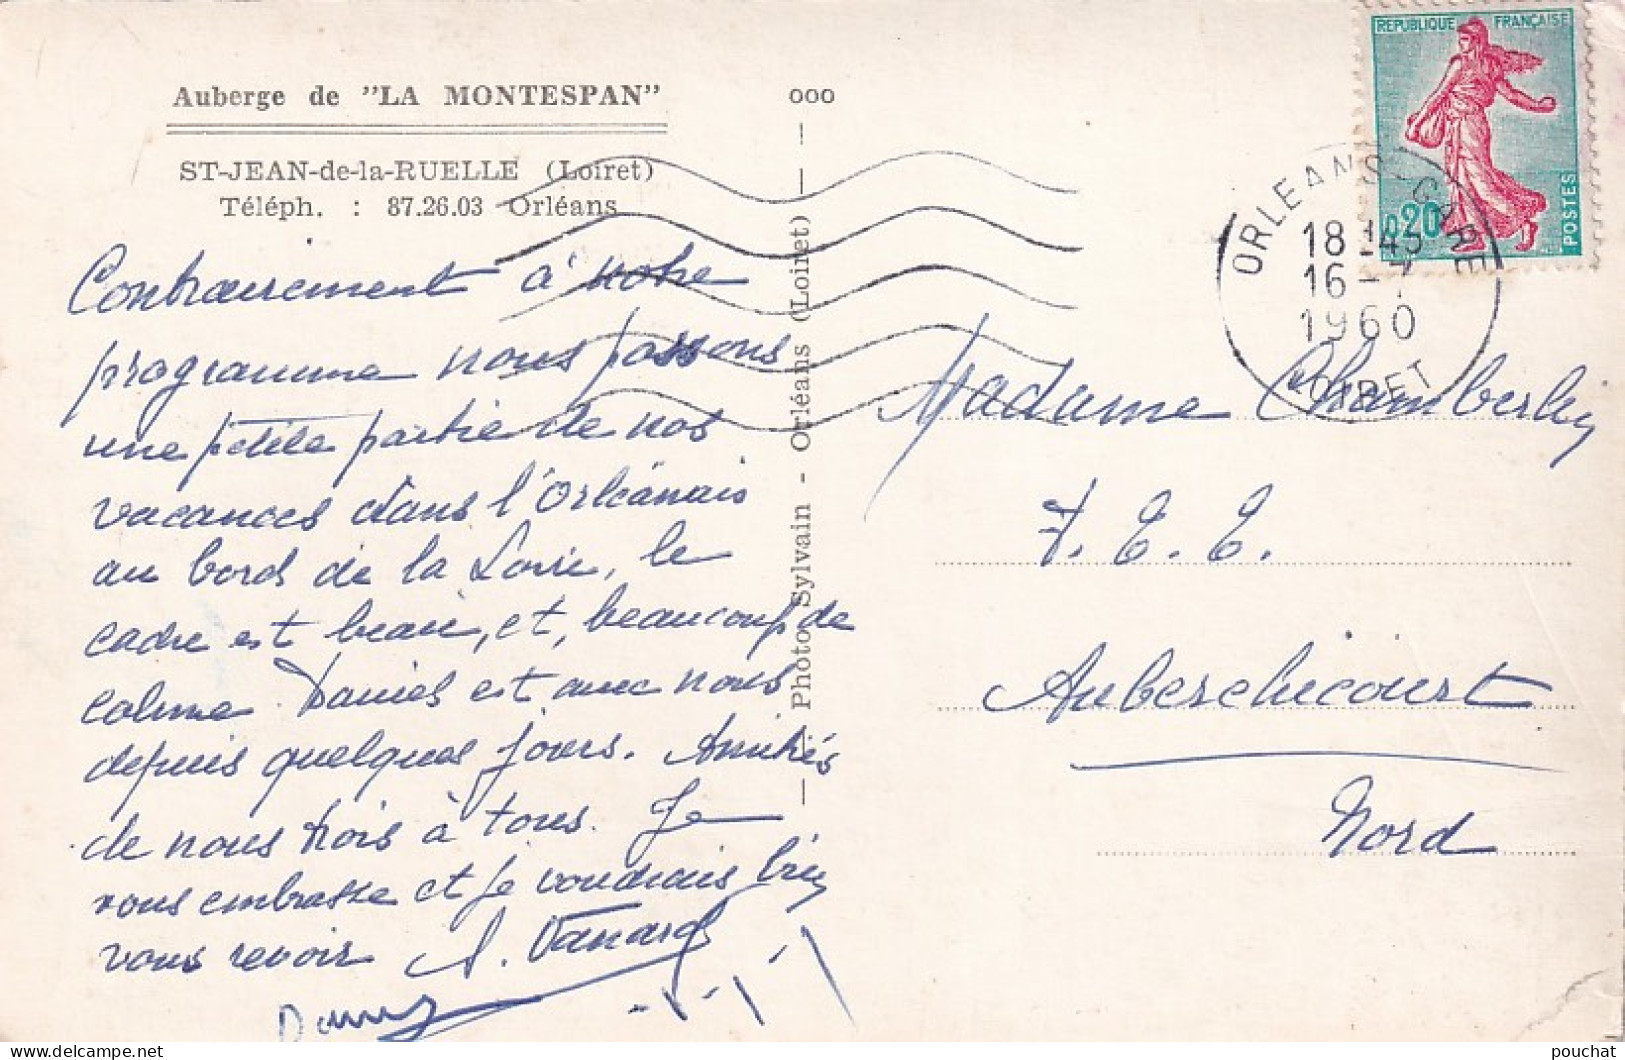 Auberge de "LA MONTESPAN"
ST-JEAN-de-la-RUELLE (Loiret)
Téléph. : 87.26.03 Orléans
Contrairement à notre
programme nous passons
une petite partie de nos
vacances dans l'Orléanais
au bord de la Loire, le
cadre est beau, et, beaucoup de
calme. Daniel est avec nous
depuis quelques jours. Amitiés
de nous trois à tous. Je
vous embrasse et je voudrais bien
vous revoir
ooo
— Photo Sylvain - Orléans (Loiret) — —
REPUBLIQUE FRANÇAISE
0,20
POSTES
ORLEANS-GARE
18 H45
16 - 7
1960
LOIRET
Madame Chamberley
Auberchicourt
Nord
pouchat